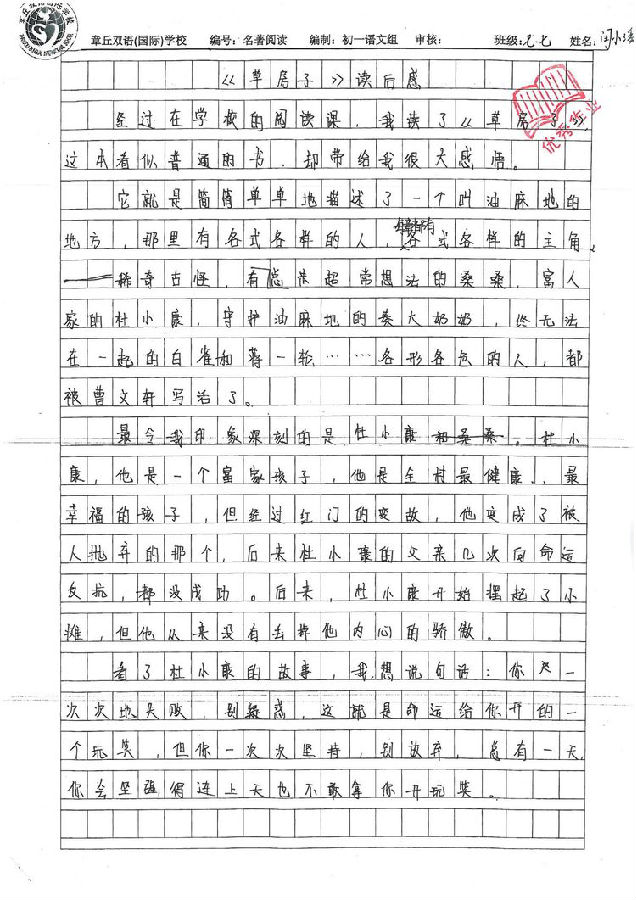 章丘双语(国际)学校 编号：名著阅读 编制：初一语文组 审核： 班级：七七 姓名：
《草房子》读后感
优秀作业
经过在学校的阅读课，我读了《草房子》，
这本看似普通的书，却带给我很大感悟。
它就是简简单单地描述了一个叫油麻地的
地方，那里有各式各样的人，有各式各样的主角。
——稀奇古怪，有总是超常想法的桑桑，富人
家的杜小康，守护油麻地的秦大奶奶，终无法
在一起的白雀和蒋一轮……各形各色的人，都
被曹文轩写活了。
最令我印象深刻的是杜小康，杜小
康，他是一个富家孩子，他是全村最健康、最
幸福的孩子，但经过红门的变故，他变成了被
人抛弃的那个，后来杜小康的父亲几次向命运
反抗，都没成功。后来，杜小康开始摆起了小
滩，但他从来没有丢掉他内心的骄傲。
看了杜小康的故事，我想说句话：你又一
次次地失败，别疑惑，这都是命运给你开的一
个玩笑，但你一次次坚持，别放弃，总有一天，
你会坚强得连上天也不敢拿你开玩笑。